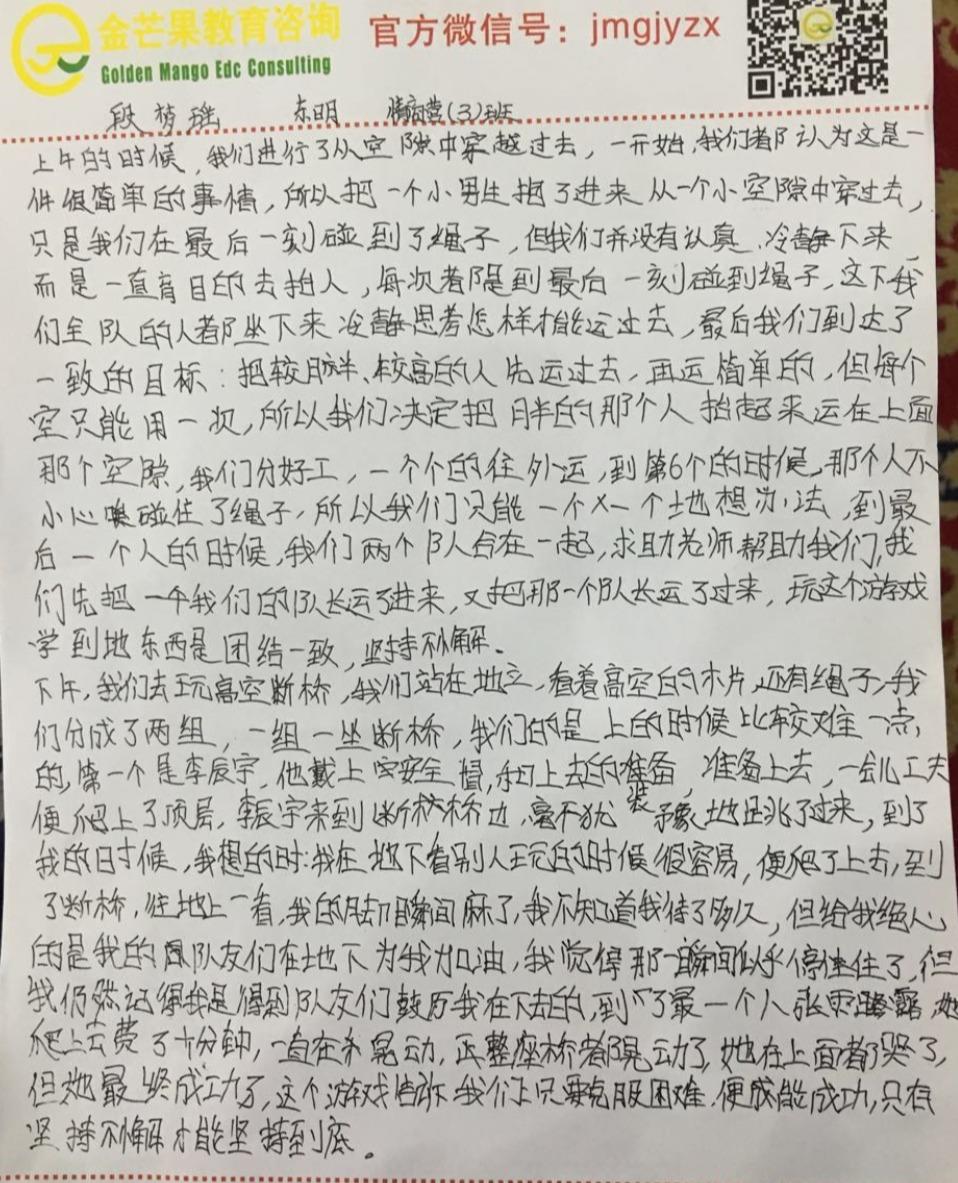 金芒果教育咨询
Golden Mango Edc Consulting
官方微信号：jmgjyzx
段梦瑶 东明 情商营(3)班
上午的时候，我们进行了从空隙中穿越过去，一开始，我们都认为这是一
件很简单的事情，所以把一个小男生抱了进来从一个小空隙中穿过去，
只是我们在最后一刻碰到了绳子，但我们并没有认真、冷静下来，
而是一直盲目的去抬人，每次都是到最后一刻碰到绳子，这下我
们全队的人都坐下来冷静思考怎样才能运过去，最后我们到达了
一致的目标：把较胖、较高的人先运过去，再运简单的，但每个
空只能用一次，所以我们决定把胖的那个人抬起来运在上面
那个空隙，我们分好工，一个个的往外运，到第6个的时候，那个人不
小心碰住了绳子，所以我们只能一个人一个地想办法，到最
后一个人的时候，我们两个队人合在一起，求助老师帮助我们，我
们先把一个我们的队长运了进来，又把那一个队长运了过来，玩这个游戏
学到地东西是团结一致，坚持不懈。
下午，我们去玩高空断桥，我们站在地上，看着高空的木片，还有绳子，我
们分成了两组，一组一坐断桥，我们的是上的时候比较难一点
的，第一个是李辰宇，他戴上安全帽，和上去的准备，准备上去，一会儿工夫
装
便爬上了顶层，李辰宇来到断桥桥边，毫不犹豫地跳了过来，到了
我的时候，我想的时：我在地下看别人玩的时候很容易，便爬了上去，到
了断桥，往地上一看，我的脚瞬间麻了，我不知道我待了多久，但给我绝心
的是我的队友们在地下为我加油，我觉得那一瞬间似乎停住了，但
我仍然记得我是得到队友们鼓历我在下去的，到了最一个人张雯露，她
爬上去费了十分钟，一直在晃动，正整座桥都晃动了，她在上面都哭了，
但她最终成功了，这个游戏告诉我们只要克服困难，便能成功，只有
坚持不懈才能坚持到底。